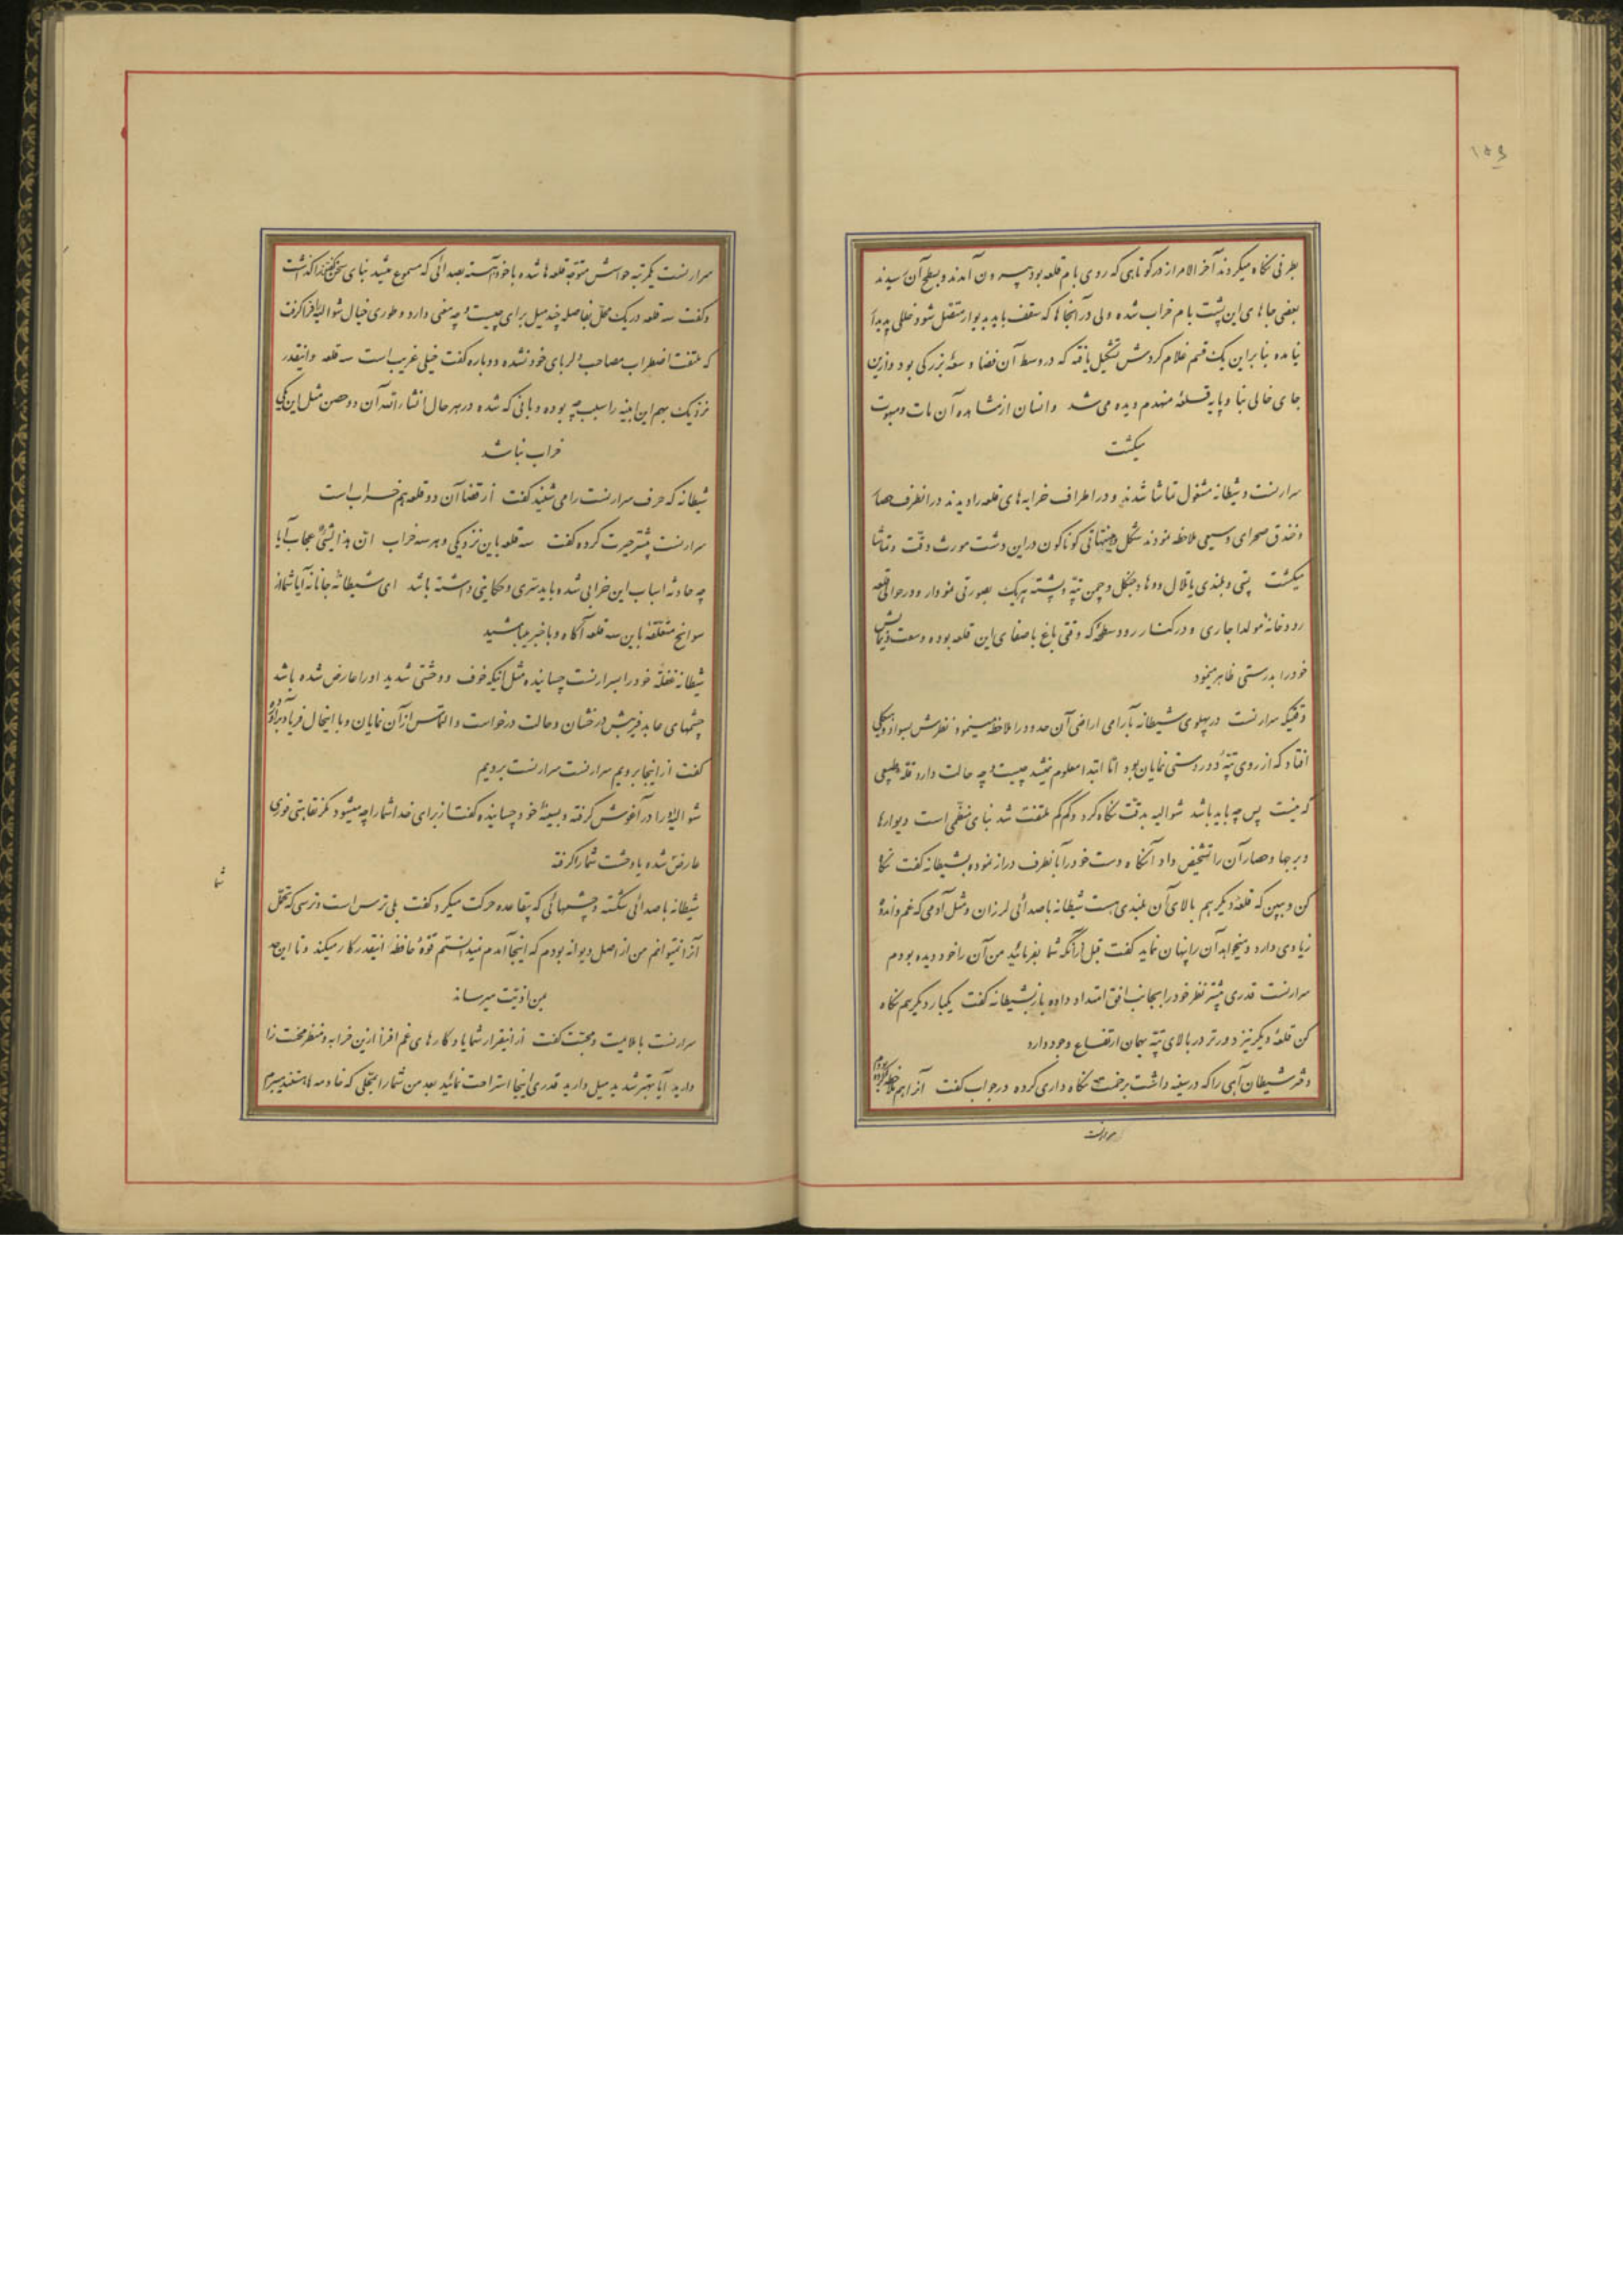 ۱۵۶
بطرفی نگاه میکردند آخر الامر از در کوتاهی که روی بام قلعه بود بیرون آمدند و بسطح آن رسیدند
بعضی جاهای این پشت بام خراب شده ولی در آنجاها که سقف باید بدیوار متصل شود خللی پدید
نیامده بنا بر این یک قسم غلام گردش تشکیل یافته که در وسط آن فضا وسعهٔ بزرگی بود و ازین
جای خالی بنا و پایه قلعهٔ منهدم دیده می شد و انسان از مشاهده آن مات و مبهوت
میگشت
سرارنست و شیطانه مشغول تماشا شدند و در اطراف خرابه های قلعه را دیدند در انطرف حصار
و خندق صحرای وسیعی ملاحظه نمودند شکل و هیئتهائی گوناگون در این دشت مورث دقت و تماشا
میگشت پستی و بلندی یا تلال و وها و جنگل و چمن تپه و پشته هر یک بصورتی نمودار و در حوالی قلعه
رودخانهٔ مولدا جاری و در کنار رود سطحهٔ که وقتی باغ باصفای این قلعه بوده وسعت و نمایش
خود را بدرستی ظاهر مینمود
وقتیکه سرارنست در پهلوی شیطانه بآرامی اراضی آن حدود را ملاحظه مینمود نظرش بسواد هیکلی
افتاد که از روی تپهٔ دور دستی نمایان بود اما ابتدا معلوم نمیشد چیست و چه حالت دارد قله طبیعی
که نیست پس چه باید باشد شوالیه بدقت نگاه کرد و کم کم ملتفت شد بنای منظمی است دیوارها
و برجها و حصار آن را تشخیص داد آنگاه دست خود را بآنطرف دراز نموده بشیطانه گفت نگاه
کن و ببین که قلعهٔ دیگر هم بالای آن بلندی هست شیطانه با صدائی لرزان و مثل آدمی که غم و اندوه
زیادی دارد و میخواهد آن را پنهان نماید گفت قبل از آنکه شما بفرمائید من آن را خود دیده بودم
سرارنست قدری بیشتر نظر خود را بجانب افق امتداد داده باز بشیطانه گفت یکبار دیگر هم نگاه
کن قلعهٔ دیگر نیز دورتر در بالای تپه بهمان ارتفاع وجود دارد
دختر شیطان آهی را که در سینه داشت بزحمت نگاه داری کرده در جواب گفت آنرا هم ملاحظه کرده بودم
سرارنست
سرارنست یکمرتبه حواسش متوجه قلعه ها شده با خود آهسته بصدائی که مسموع میشد بنای سخن گفتن گذاشت
و گفت سه قلعه در یک محل بفاصله چند میل برای چیست و چه معنی دارد و طوری خیال شوالیه را فرا گرفت
که ملتفت اضطراب مصاحب دلربای خود نشده دوباره گفت خیلی غریب است سه قلعه و اینقدر
نزدیک بهم این ابنیه را سبب چه بوده و بانی که شده در هر حال انشاءالله آن دو حصن مثل این یکی
خراب نباشد
شیطانه که حرف سرارنست را می شنید گفت از قضا آن دو قلعه هم خراب است
سرارنست بیشتر حیرت کرده گفت سه قلعه باین نزدیکی و هر سه خراب ان هذا لشیٌ عجاب آیا
چه حادثه اسباب این خرابی شده و باید سری و حکایتی داشته باشد ای شیطانهٔ جانانه آیا شما از
سوانح متعلقه باین سه قلعه آگاه و باخبر میباشید
شیطانه بغتة خود را بسرارنست چسبانیده مثل اینکه خوف و وحشتی شدید او را عارض شده باشد
چشمهای عابد فریبش درخشان و حالت درخواست و التماس از آن نمایان و با اینحال فریاد برآورده
گفت از اینجا برویم سرارنست سرارنست برویم
شوالیه او را در آغوش گرفته و بسینهٔ خود چسبانیده گفت از برای خدا شما را چه میشود مگر نقاهتی فوری
عارض شده یا وحشت شما را گرفته
شیطانه با صدائی شکسته و چشمهائی که بیقاعده حرکت میکرد گفت بلی ترس است و ترسی که تحمل
آنرا نمیتوانم من از اصل دیوانه بودم که اینجا آمدم نمیدانستم قوهٔ حافظه اینقدر کار میکند و تا این حد
بمن اذیت میرساند
سرارنست با ملایمت و محبت گفت از اینقرار شما یادگارهای غم افزا ازین خرابه و منظر محنت زا
دارید آیا بهتر شدید میل دارید قدری اینجا استراحت نمائید بعد من شما را بمحلی که خادمه ها هستند میبرم
شما